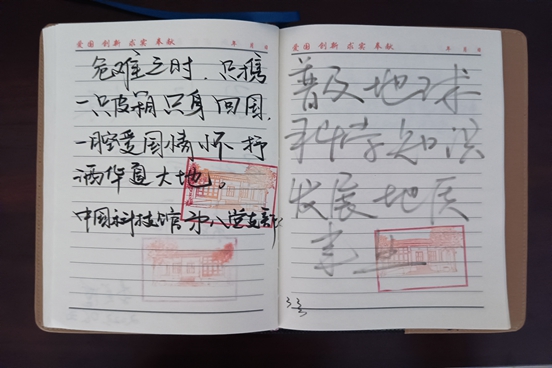 爱国 创新 求实 奉献
年 月 日
危难之时，只携
一只皮箱只身回国，
一腔爱国情怀抒
洒华夏大地。
中国科技馆第八党支部
爱国 创新 求实 奉献
年 月 日
普及地球
科学知识
发展地质
事业